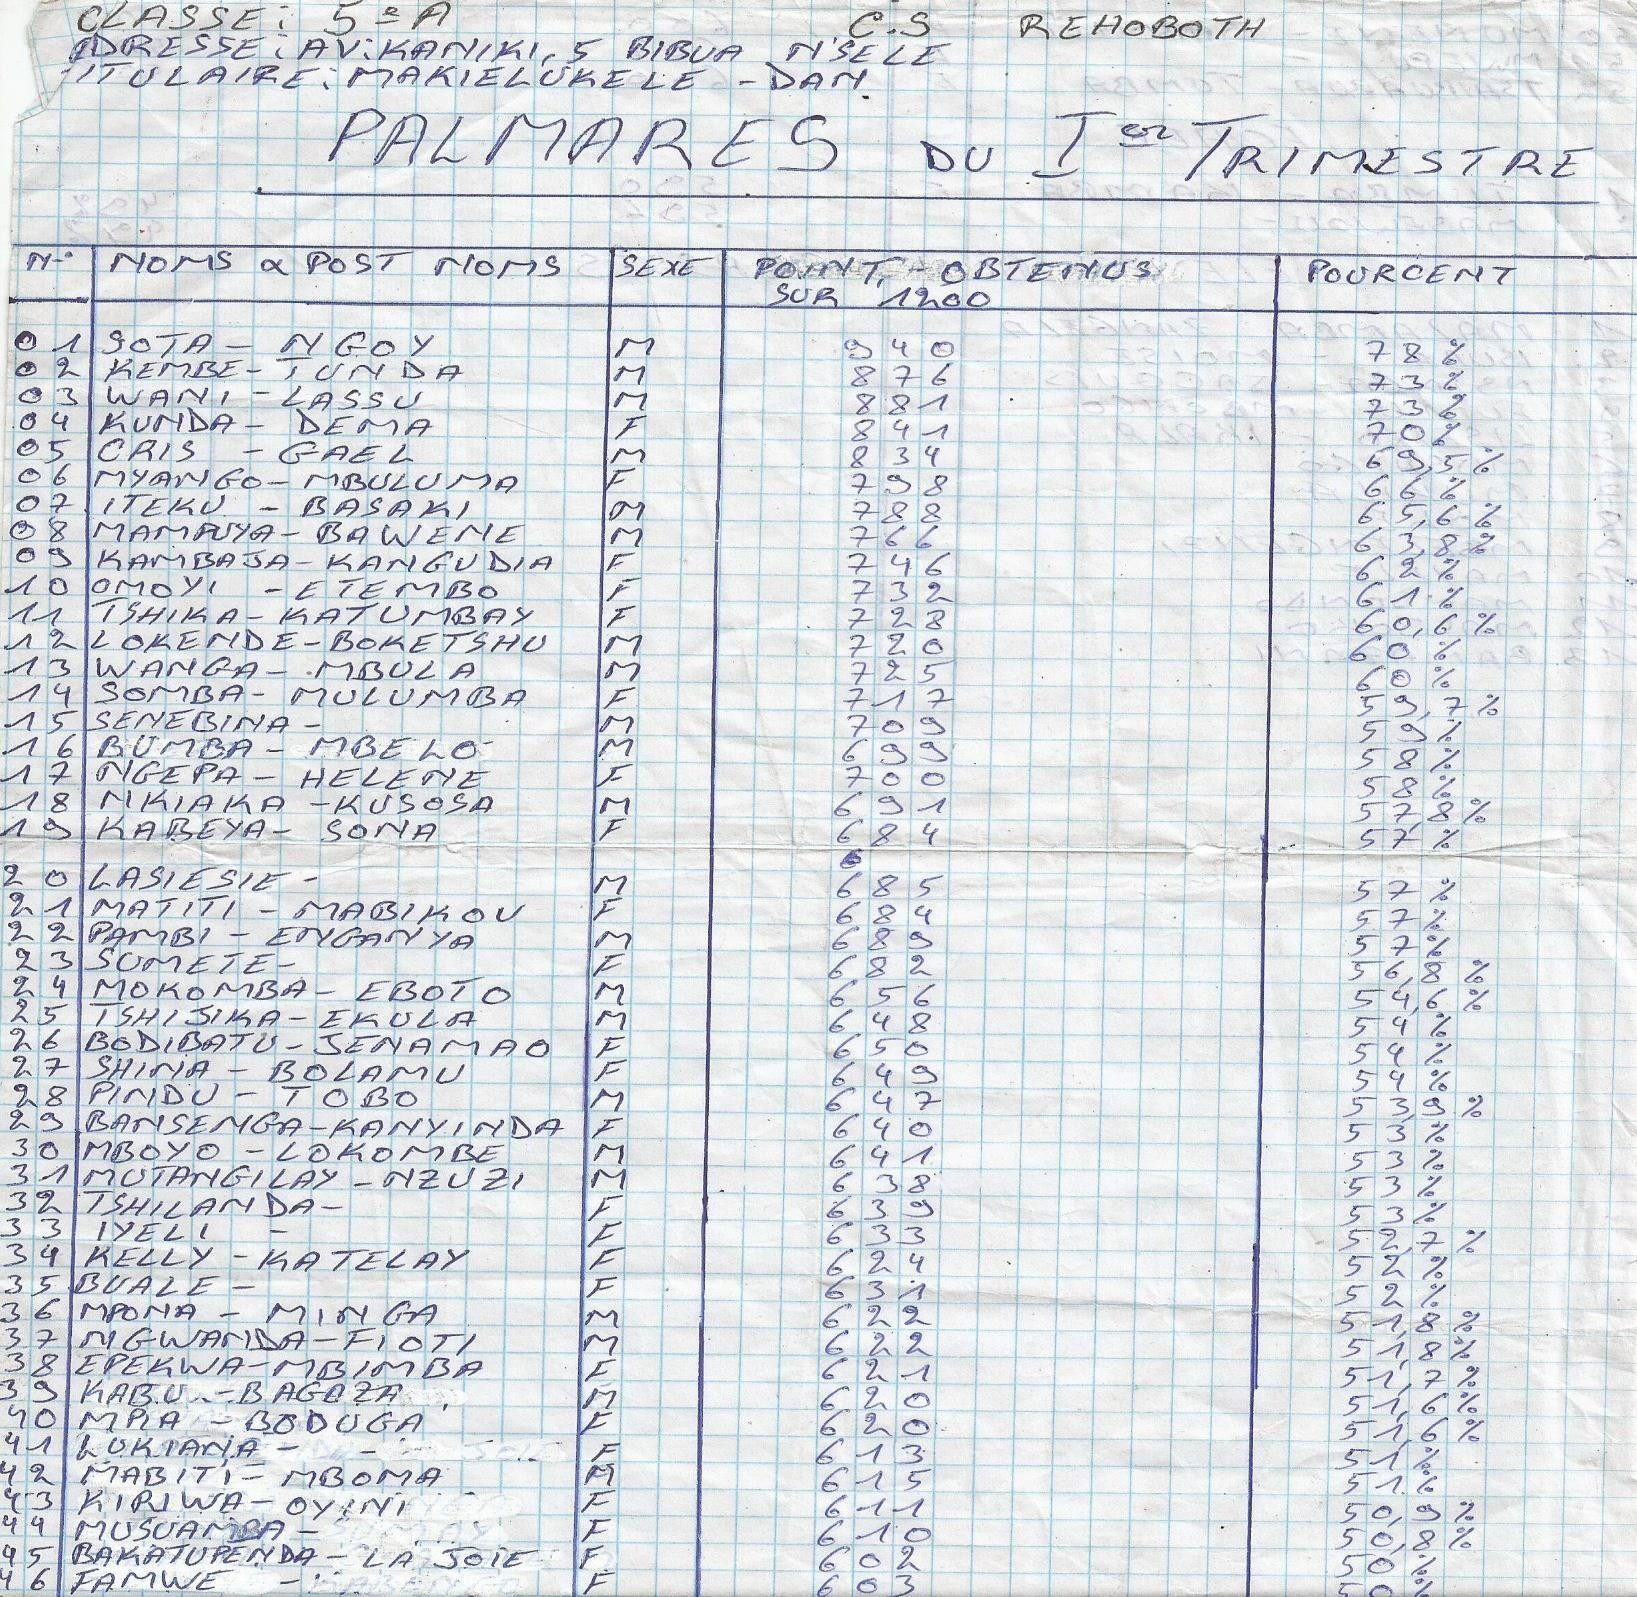 CLASSE: 5e A C.S REHOBOTH
ADRESSE: AV: KANIKI, 5 BIBUA N'SELE
TITULAIRE: MAKIELUKELE - DAN
PALMARES DU Ier TRIMESTRE
N° NOMS & POST NOMS SEXE POINT - OBTENUS SUR 1200 POURCENT
01 SOTA - NGOY M 940 78%
02 KEMBE - TUNDA M 876 73%
03 WANI - LASSU M 881 73%
04 KUNDA - DEMA F 841 70%
05 CRIS - GAEL M 834 69,5%
06 MYANGO - MBULUMA F 798 66%
07 ITEKU - BASAKI M 788 65,6%
08 MAMPUYA - BAWENE M 766 63,8%
09 KAMBAJA - KANGUDIA F 746 62%
10 OMOYI - ETEMBO F 732 61%
11 TSHIKA - KATUMBAY F 728 60,6%
12 LOKENDE - BOKETSHU M 720 60%
13 WANGA - MBULA M 725 60%
14 SOMBA - MULUMBA F 717 59,7%
15 SENEBINA - M 709 59%
16 BUMBA - MBELO M 699 58%
17 NGEPA - HELENE F 700 58%
18 NKIAKA - KUSOSA M 691 57,8%
19 KABEYA - SONA F 684 57%
20 LASIESIE - M 685 57%
21 MATITI - MABIKOU F 684 57%
22 PAMBI - ENGANYA M 689 57%
23 SUMETE - F 682 56,8%
24 MOKOMBA - EBOTO M 656 54,6%
25 TSHIJIKA - EKULA M 648 54%
26 BODIBATU - JENAMAO F 650 54%
27 SHINA - BOLAMU F 649 54%
28 PINDU - TOBO M 647 53,9%
29 BANSENGA - KANYINDA F 640 53%
30 MBOYO - LOKOMBE M 641 53%
31 MUTANGILAY - NZUZI M 638 53%
32 TSHILANDA - F 639 53%
33 IYELI - F 633 52,7%
34 KELLY - KATELAY F 624 52%
35 BUALE - F 631 52%
36 MPONA - MINGA M 622 51,8%
37 NGWANDA - FIOTI M 622 51,8%
38 EPEKWA - MBIMBA F 621 51,7%
39 KABU - BAGAZA M 620 51,6%
40 MPIA - BODUGA F 620 51,6%
41 LUKIANA - F 613 51%
42 MABITI - MBOMA M 615 51%
43 KIRIWA - OYINI F 611 50,9%
44 MUSUAMBA - F 610 50,8%
45 BAKATUPENDA - LA JOIE F 602 50%
46 FAMWE - F 603 50%